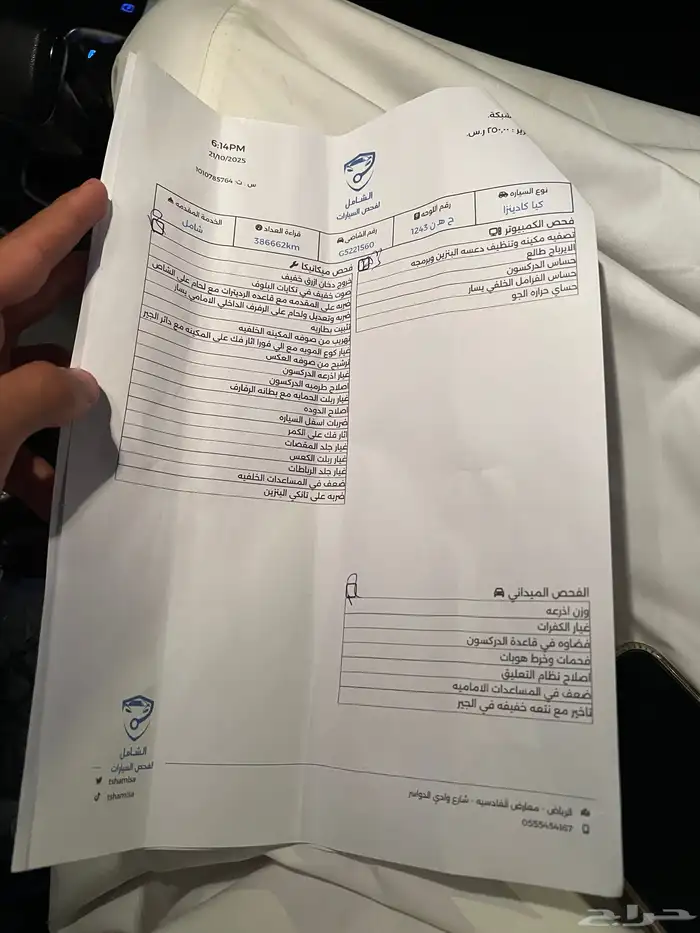 شبكة.
رير : ٢٥٠,٠٠ ر.س.
6:14PM
21/10/2025
س . ت: 1010785764
الشامل
لفحص السيارات
نوع السياره
كيا كادينزا
رقم اللوحه
ح ه ن 1243
رقم الشاصي
G5221560
قراءة العداد
386662km
الخدمة المقدمه
شامل
فحص الكمبيوتر
تصفيه مكينه وتنظيف دعسه البنزين وبرمجه
الايرباج طالع
حساس الدركسون
حساس الفرامل الخلفي يسار
حساي حراره الجو
فحص ميكانيكا
خروج دخان ازرق خفيف
صوت خفيف في تكايات البلوف
ضربه على المقدمه مع قاعده الرديترات مع لحام على الشاص
ضربه وتعديل ولحام على الرفرف الداخلي الامامي يسار
تثبيت بطاريه
تهريب من صوفه المكينه الخلفيه
غيار كوع المويه مع الي فورا اثار فك على المكينه مع دائر الجير
ترشيح من صوفه العكس
غيار اذرعه الدركسون
اصلاح طرمبه الدركسون
غيار ربلت الحمايه مع بطانه الرفارف
اصلاح الدوده
ضربات اسفل السياره
اثار فك على الكمر
غيار جلد المقصات
غيار ربلت الكعس
غيار جلد الرباطات
ضعف في المساعدات الخلفيه
ضربه على تانكي البنزين
الفحص الميداني
وزن اذرعه
غيار الكفرات
فضاوه في قاعدة الدركسون
فحمات وخرط هوبات
اصلاح نظام التعليق
ضعف في المساعدات الاماميه
تأخير مع نتعه خفيفه في الجير
الشامل
لفحص السيارات
tshamlsa
tshamlsa
الرياض - معارض القادسيه - شارع وادي الدواسر
0555454167
حراج